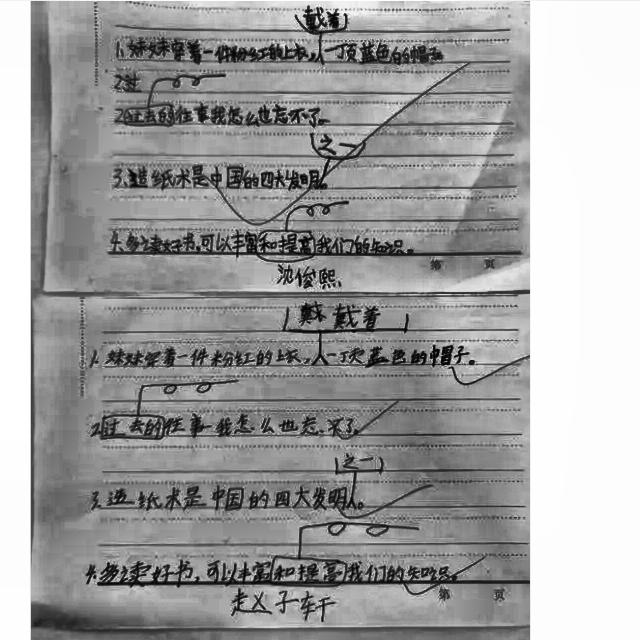 戴着
1.妹妹穿着一件粉红的上衣,一顶蓝色的帽子
2.过
2.过去的往事我怎么也忘不了。
之一
3.造纸术是中国的四大发明。
4.多读好书,可以丰富和提高我们的知识。
第 页
沈俊熙
戴着
1.妹妹穿着一件粉红的上衣,一顶蓝色的帽子。
2.过去的往事我怎么也忘不了
之一
3.造纸术是中国的四大发明。
4.多读好书,可以丰富和提高我们的知识。
第 页
赵子轩